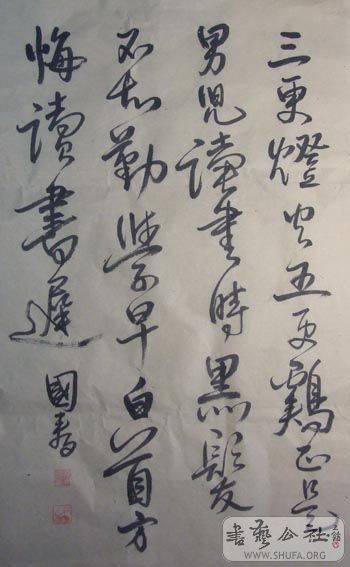 三更燈火五更鷄正是
男兒读書時黑髮
不知勤學早白首方
悔讀書遲
國春
書藝公社
WWW.SHUFA.ORG